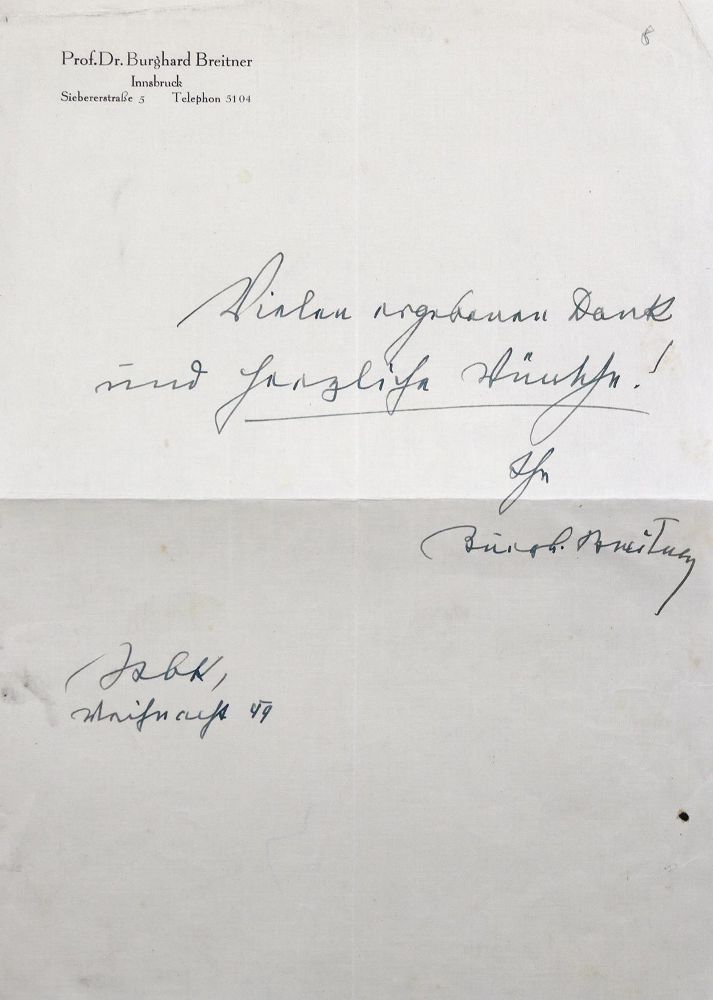 8
Prof.Dr. Burghard Breitner
Innsbruck
Siebererstraße 5 Telephon 5104
Vielen ergebenen Dank
und herzliche Wünsche!
Ihr
Burgh. Breitner
Isbk,
Weihnacht 49